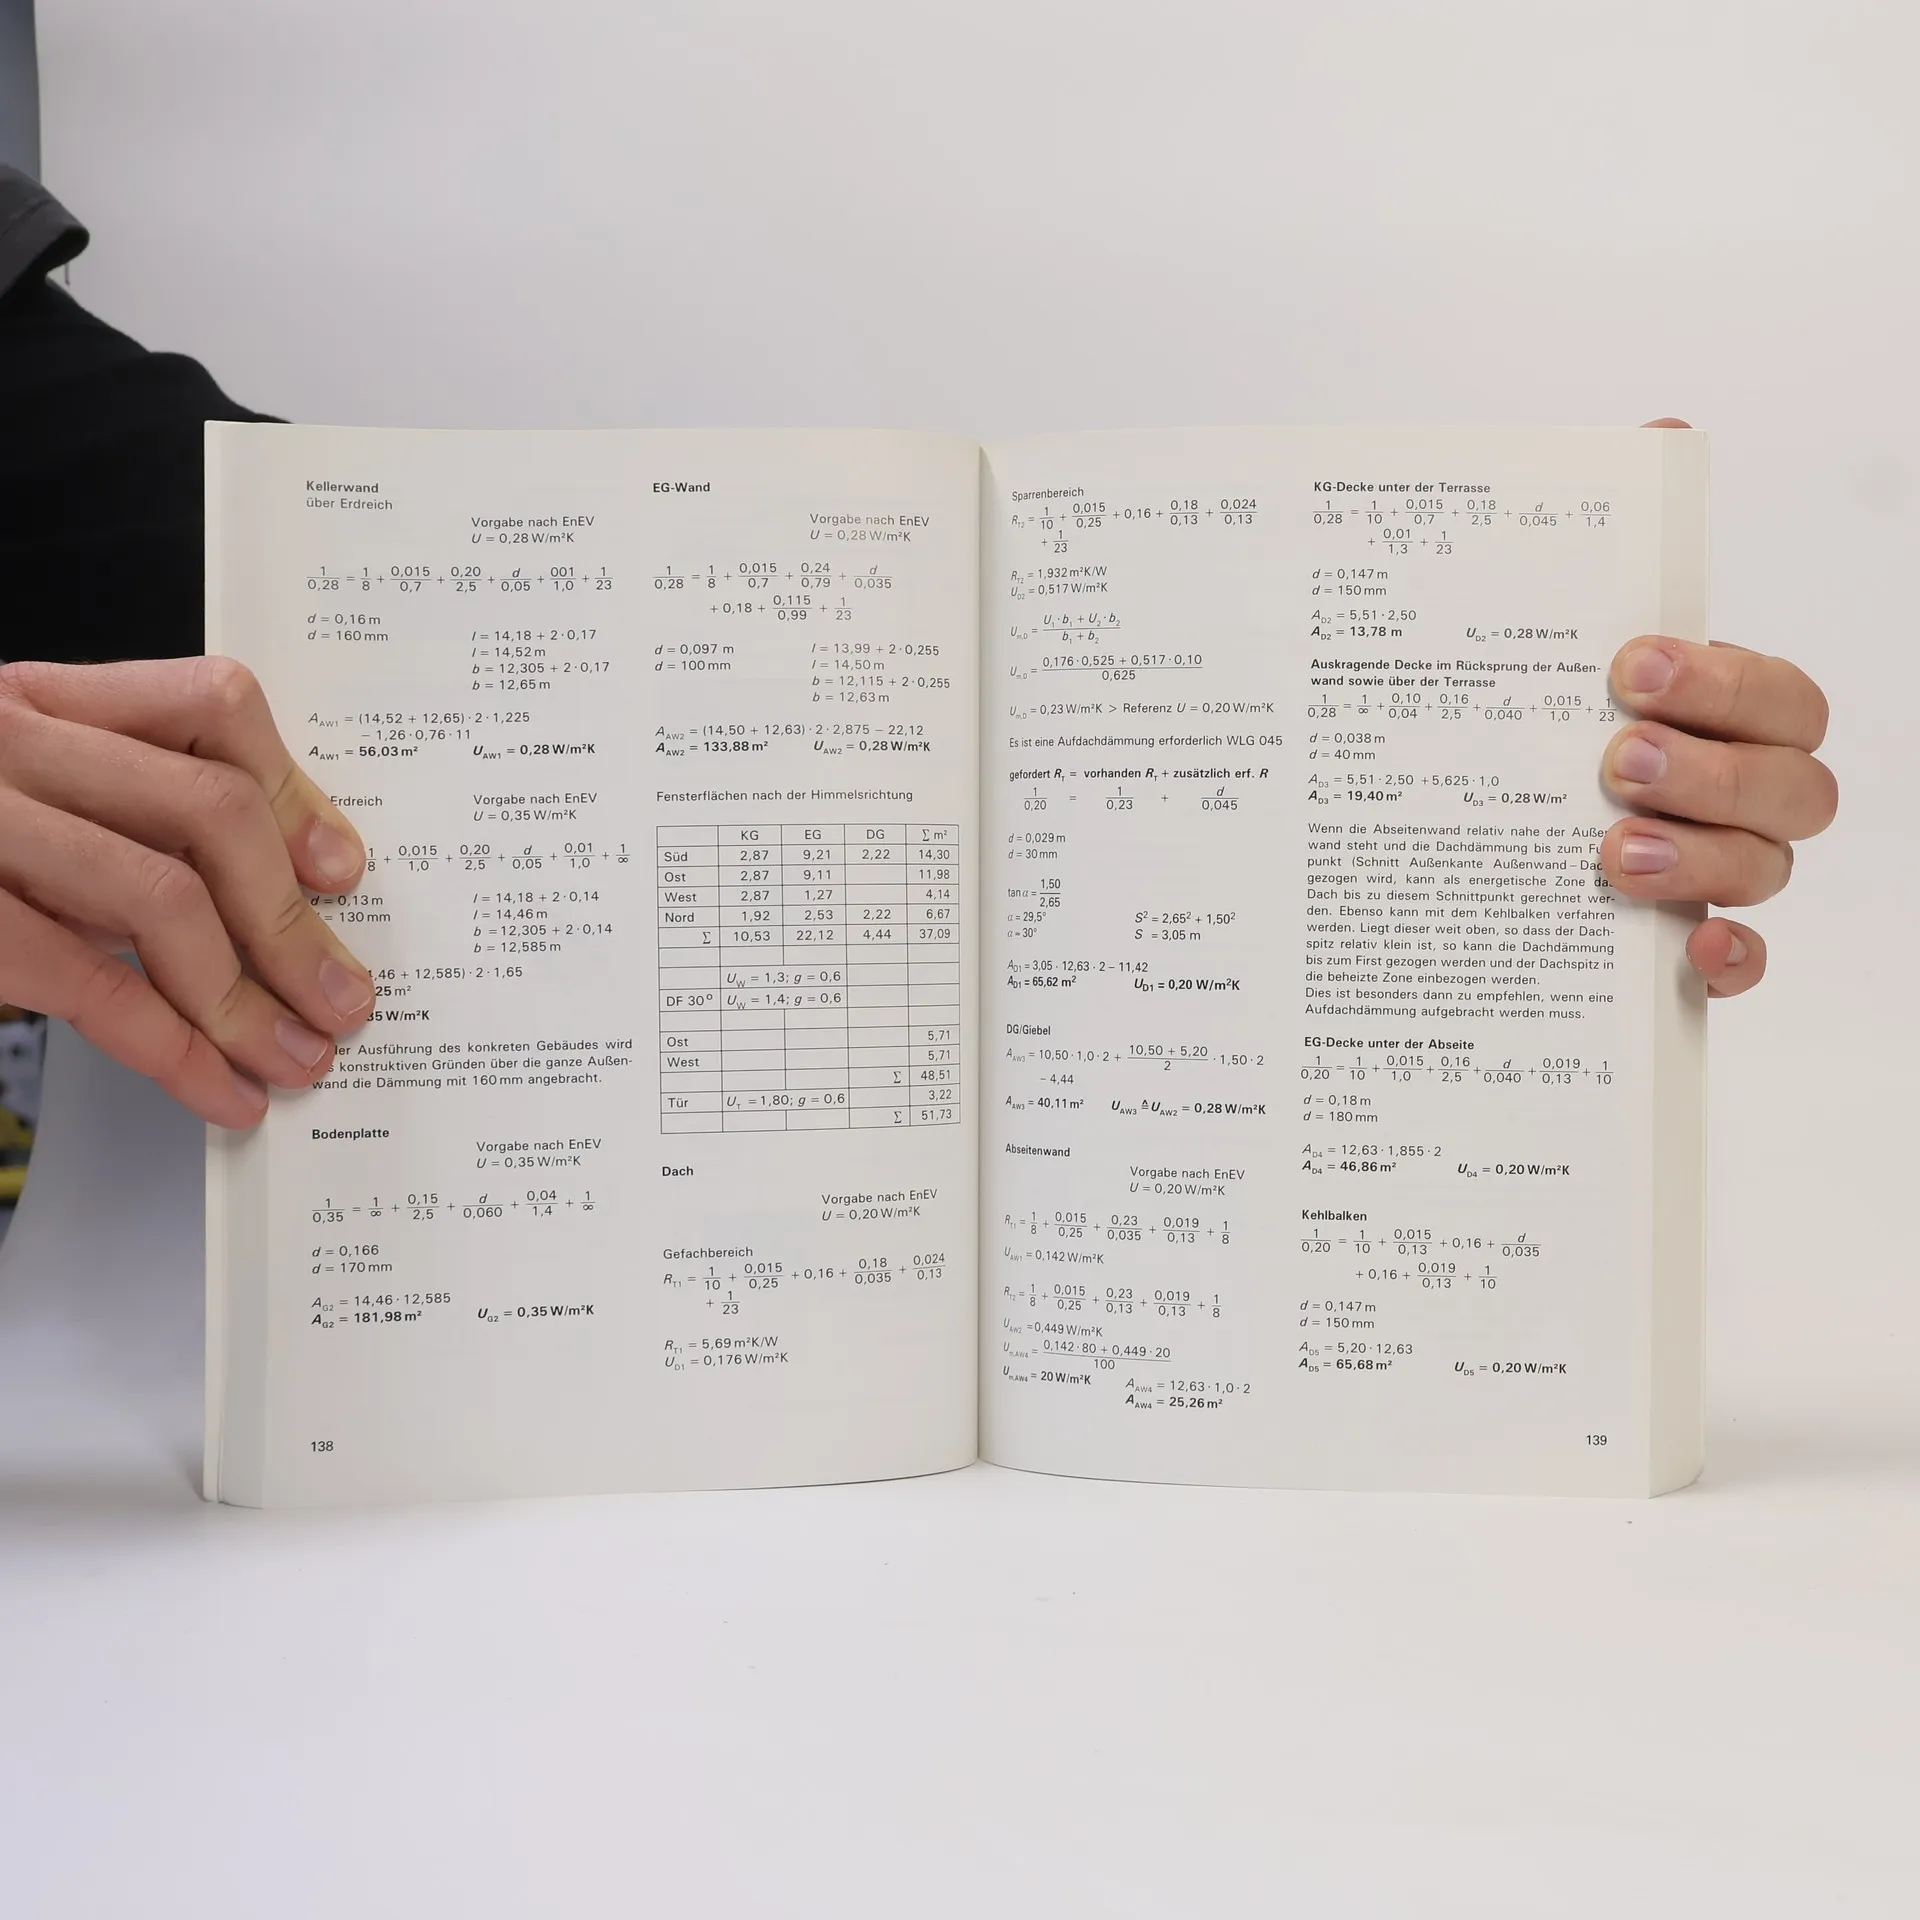 Kellerwand
über Erdreich
Vorgabe nach EnEV
U = 0,28 W/m²K
1/0,28 = 1/8 + 0,015/0,7 + 0,20/2,5 + d/0,05 + 001/1,0 + 1/23
d = 0,16 m
d = 160 mm
l = 14,18 + 2·0,17
l = 14,52 m
b = 12,305 + 2·0,17
b = 12,65 m
A_AW1 = (14,52 + 12,65)·2·1,225
– 1,26·0,76·11
A_AW1 = 56,03 m² U_AW1 = 0,28 W/m²K
Erdreich
Vorgabe nach EnEV
U = 0,35 W/m²K
1/8 + 0,015/1,0 + 0,20/2,5 + d/0,05 + 0,01/1,0 + 1/∞
d = 0,13 m
= 130 mm
l = 14,18 + 2·0,14
l = 14,46 m
b = 12,305 + 2·0,14
b = 12,585 m
,46 + 12,585)·2·1,65
25 m²
35 W/m²K
der Ausführung des konkreten Gebäudes wird
konstruktiven Gründen über die ganze Außen-
wand die Dämmung mit 160 mm angebracht.
Bodenplatte
Vorgabe nach EnEV
U = 0,35 W/m²K
1/0,35 = 1/∞ + 0,15/2,5 + d/0,060 + 0,04/1,4 + 1/∞
d = 0,166
d = 170 mm
A_G2 = 14,46·12,585
A_G2 = 181,98 m² U_G2 = 0,35 W/m²K
138
EG-Wand
Vorgabe nach EnEV
U = 0,28 W/m²K
1/0,28 = 1/8 + 0,015/0,7 + 0,24/0,79 + d/0,035
+ 0,18 + 0,115/0,99 + 1/23
d = 0,097 m
d = 100 mm
l = 13,99 + 2·0,255
l = 14,50 m
b = 12,115 + 2·0,255
b = 12,63 m
A_AW2 = (14,50 + 12,63)·2·2,875 – 22,12
A_AW2 = 133,88 m² U_AW2 = 0,28 W/m²K
Fensterflächen nach der Himmelsrichtung
KG EG DG Σ m²
Süd 2,87 9,21 2,22 14,30
Ost 2,87 9,11 11,98
West 2,87 1,27 4,14
Nord 1,92 2,53 2,22 6,67
Σ 10,53 22,12 4,44 37,09
U_W = 1,3; g = 0,6
DF 30° U_W = 1,4; g = 0,6
Ost 5,71
West 5,71
Σ 48,51
Tür U_T = 1,80; g = 0,6 3,22
Σ 51,73
Dach
Vorgabe nach EnEV
U = 0,20 W/m²K
Gefachbereich
R_T1 = 1/10 + 0,015/0,25 + 0,16 + 0,18/0,035 + 0,024/0,13
+ 1/23
R_T1 = 5,69 m²K/W
U_D1 = 0,176 W/m²K
Sparrenbereich
R_T2 = 1/10 + 0,015/0,25 + 0,16 + 0,18/0,13 + 0,024/0,13
+ 1/23
R_T2 = 1,932 m²K/W
U_D2 = 0,517 W/m²K
U_m,D = U₁·b₁ + U₂·b₂/b₁ + b₂
U_m,D = 0,176·0,525 + 0,517·0,10/0,625
U_m,D = 0,23 W/m²K > Referenz U = 0,20 W/m²K
Es ist eine Aufdachdämmung erforderlich WLG 045
gefordert R_T = vorhanden R_T + zusätzlich erf. R
1/0,20 = 1/0,23 + d/0,045
d = 0,029 m
d = 30 mm
tan α = 1,50/2,65
α = 29,5°
α ≈ 30°
S² = 2,65² + 1,50²
S = 3,05 m
A_D1 = 3,05·12,63·2 – 11,42
A_D1 = 65,62 m² U_D1 = 0,20 W/m²K
DG/Giebel
A_AW3 = 10,50·1,0·2 + 10,50 + 5,20/2·1,50·2
– 4,44
A_AW3 = 40,11 m² U_AW3 ≙ U_AW2 = 0,28 W/m²K
Abseitenwand
Vorgabe nach EnEV
U = 0,20 W/m²K
R_T1 = 1/8 + 0,015/0,25 + 0,23/0,035 + 0,019/0,13 + 1/8
U_AW1 = 0,142 W/m²K
R_T2 = 1/8 + 0,015/0,25 + 0,23/0,13 + 0,019/0,13 + 1/8
U_AW2 = 0,449 W/m²K
U_m,AW4 = 0,142·80 + 0,449·20/100
U_m,AW4 = 20 W/m²K
A_AW4 = 12,63·1,0·2
A_AW4 = 25,26 m²
KG-Decke unter der Terrasse
1/0,28 = 1/10 + 0,015/0,7 + 0,18/2,5 + d/0,045 + 0,06/1,4
+ 0,01/1,3 + 1/23
d = 0,147 m
d = 150 mm
A_D2 = 5,51·2,50
A_D2 = 13,78 m U_D2 = 0,28 W/m²K
Auskragende Decke im Rücksprung der Außen-
wand sowie über der Terrasse
1/0,28 = 1/∞ + 0,10/0,04 + 0,16/2,5 + d/0,040 + 0,015/1,0 + 1/23
d = 0,038 m
d = 40 mm
A_D3 = 5,51·2,50 + 5,625·1,0
A_D3 = 19,40 m² U_D3 = 0,28 W/m²
Wenn die Abseitenwand relativ nahe der Außen
wand steht und die Dachdämmung bis zum Fu
punkt (Schnitt Außenkante Außenwand – Dac
gezogen wird, kann als energetische Zone das
Dach bis zu diesem Schnittpunkt gerechnet wer-
den. Ebenso kann mit dem Kehlbalken verfahren
werden. Liegt dieser weit oben, so dass der Dach-
spitz relativ klein ist, so kann die Dachdämmung
bis zum First gezogen werden und der Dachspitz in
die beheizte Zone einbezogen werden.
Dies ist besonders dann zu empfehlen, wenn eine
Aufdachdämmung aufgebracht werden muss.
EG-Decke unter der Abseite
1/0,20 = 1/10 + 0,015/1,0 + 0,16/2,5 + d/0,040 + 0,019/0,13 + 1/10
d = 0,18 m
d = 180 mm
A_D4 = 12,63·1,855·2
A_D4 = 46,86 m² U_D4 = 0,20 W/m²K
Kehlbalken
1/0,20 = 1/10 + 0,015/0,13 + 0,16 + d/0,035
+ 0,16 + 0,019/0,13 + 1/10
d = 0,147 m
d = 150 mm
A_D5 = 5,20·12,63
A_D5 = 65,68 m² U_D5 = 0,20 W/m²K
139